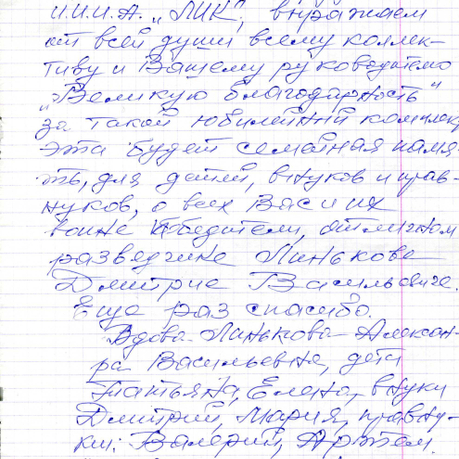 И.И.И.А. „ЛИК", выражаем
от всей души всему коллек-
тиву и Вашему руководителю
„Великую благодарность"
за такой юбилейный комплек
эта будет семейная памя-
ть, для детей, внуков и прав-
нуков, о всех Вас и их
воине победители, отличном
разведчике Линькове
Дмитрие Васильевиче.
Еще раз спасибо.
Вдова Линькова Алексан-
ра Васильевна, дети
Татьяна, Елена, внуки
Дмитрий, Мария, правну-
ки: Валерий, Артём.